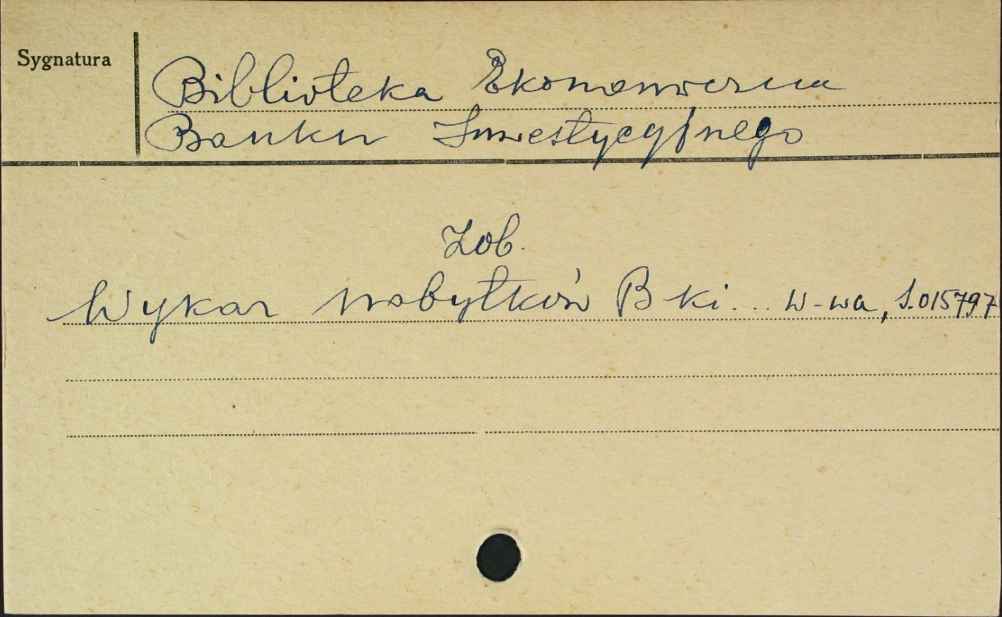 Sygnatura
Biblioteka Ekonomiczna
Banku Inwestycyjnego
Zob.
Wykaz nabytków B ki... W-wa, S.015797